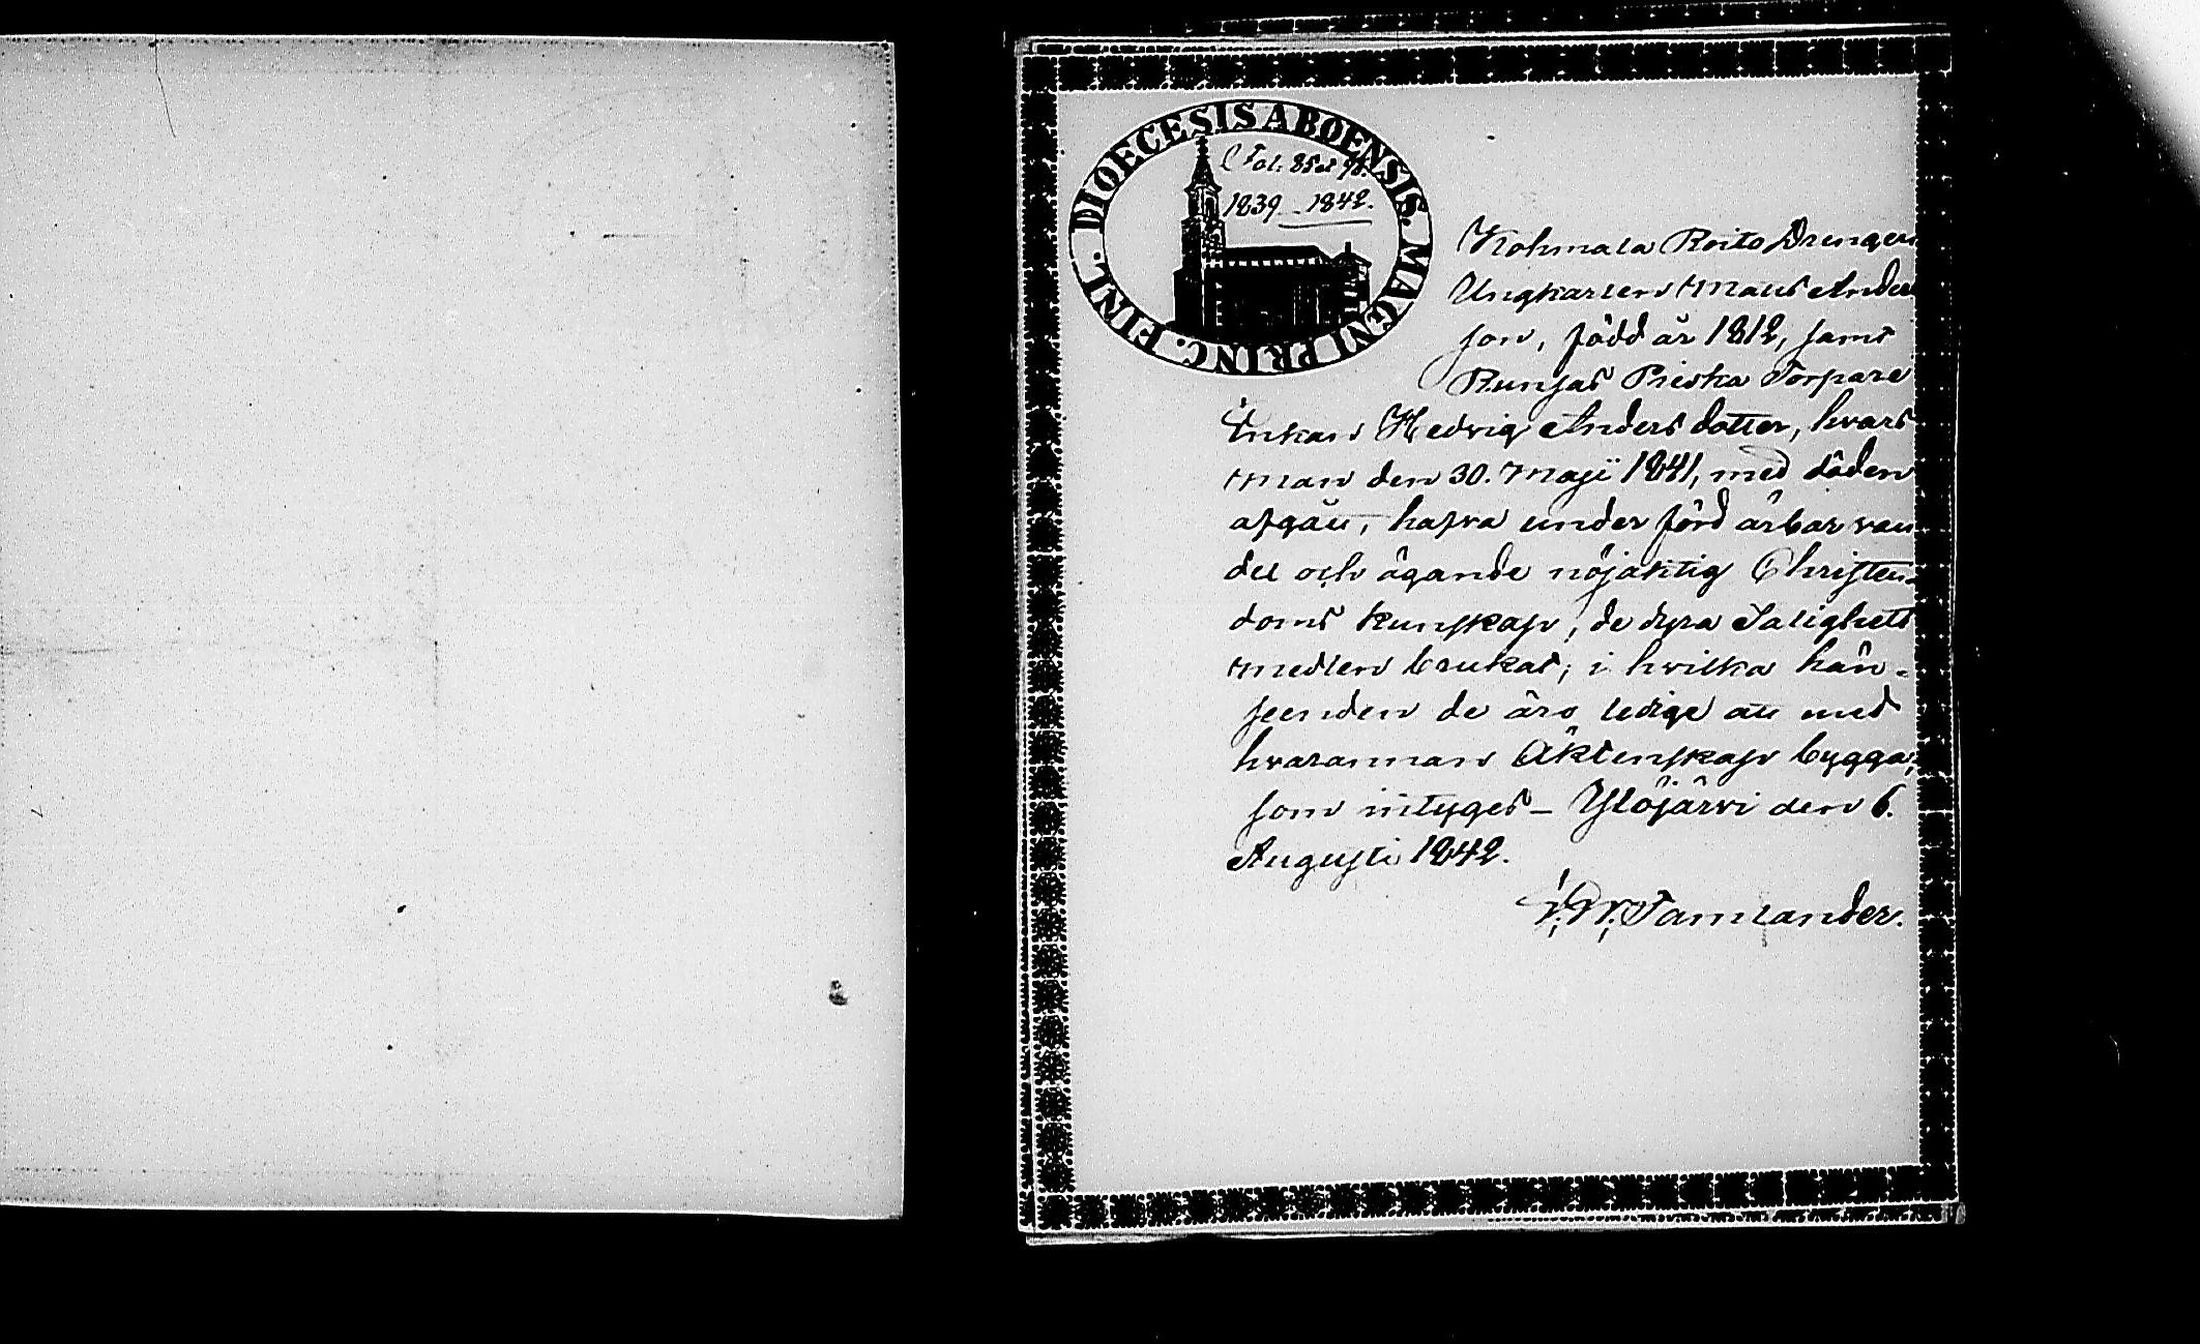 DIOECESIS ABOENSIS. MAGNI PRINC. FINL.
Fol. 85 et 98.
1839 – 1842.
Kohmala Roito Drengen
Ungkarlen Mats Anders
son, född år 1812, samt
Runsas Pieska Torpare
Enkan Hedvig Anders dotter, hvars
man den 30. Maji 1841, med döden
afgått, hafva under förd ärbar van
del och ägande nöjaktig Christen-
doms kunskap, de dyra Salighets
medlen brukat; i hvilka hän-
seenden de äro ledige att med
hvarannan Äktenskap bygga;
som intyges – Ylöjärvi den 6.
Augusti 1842.
Tamlander.